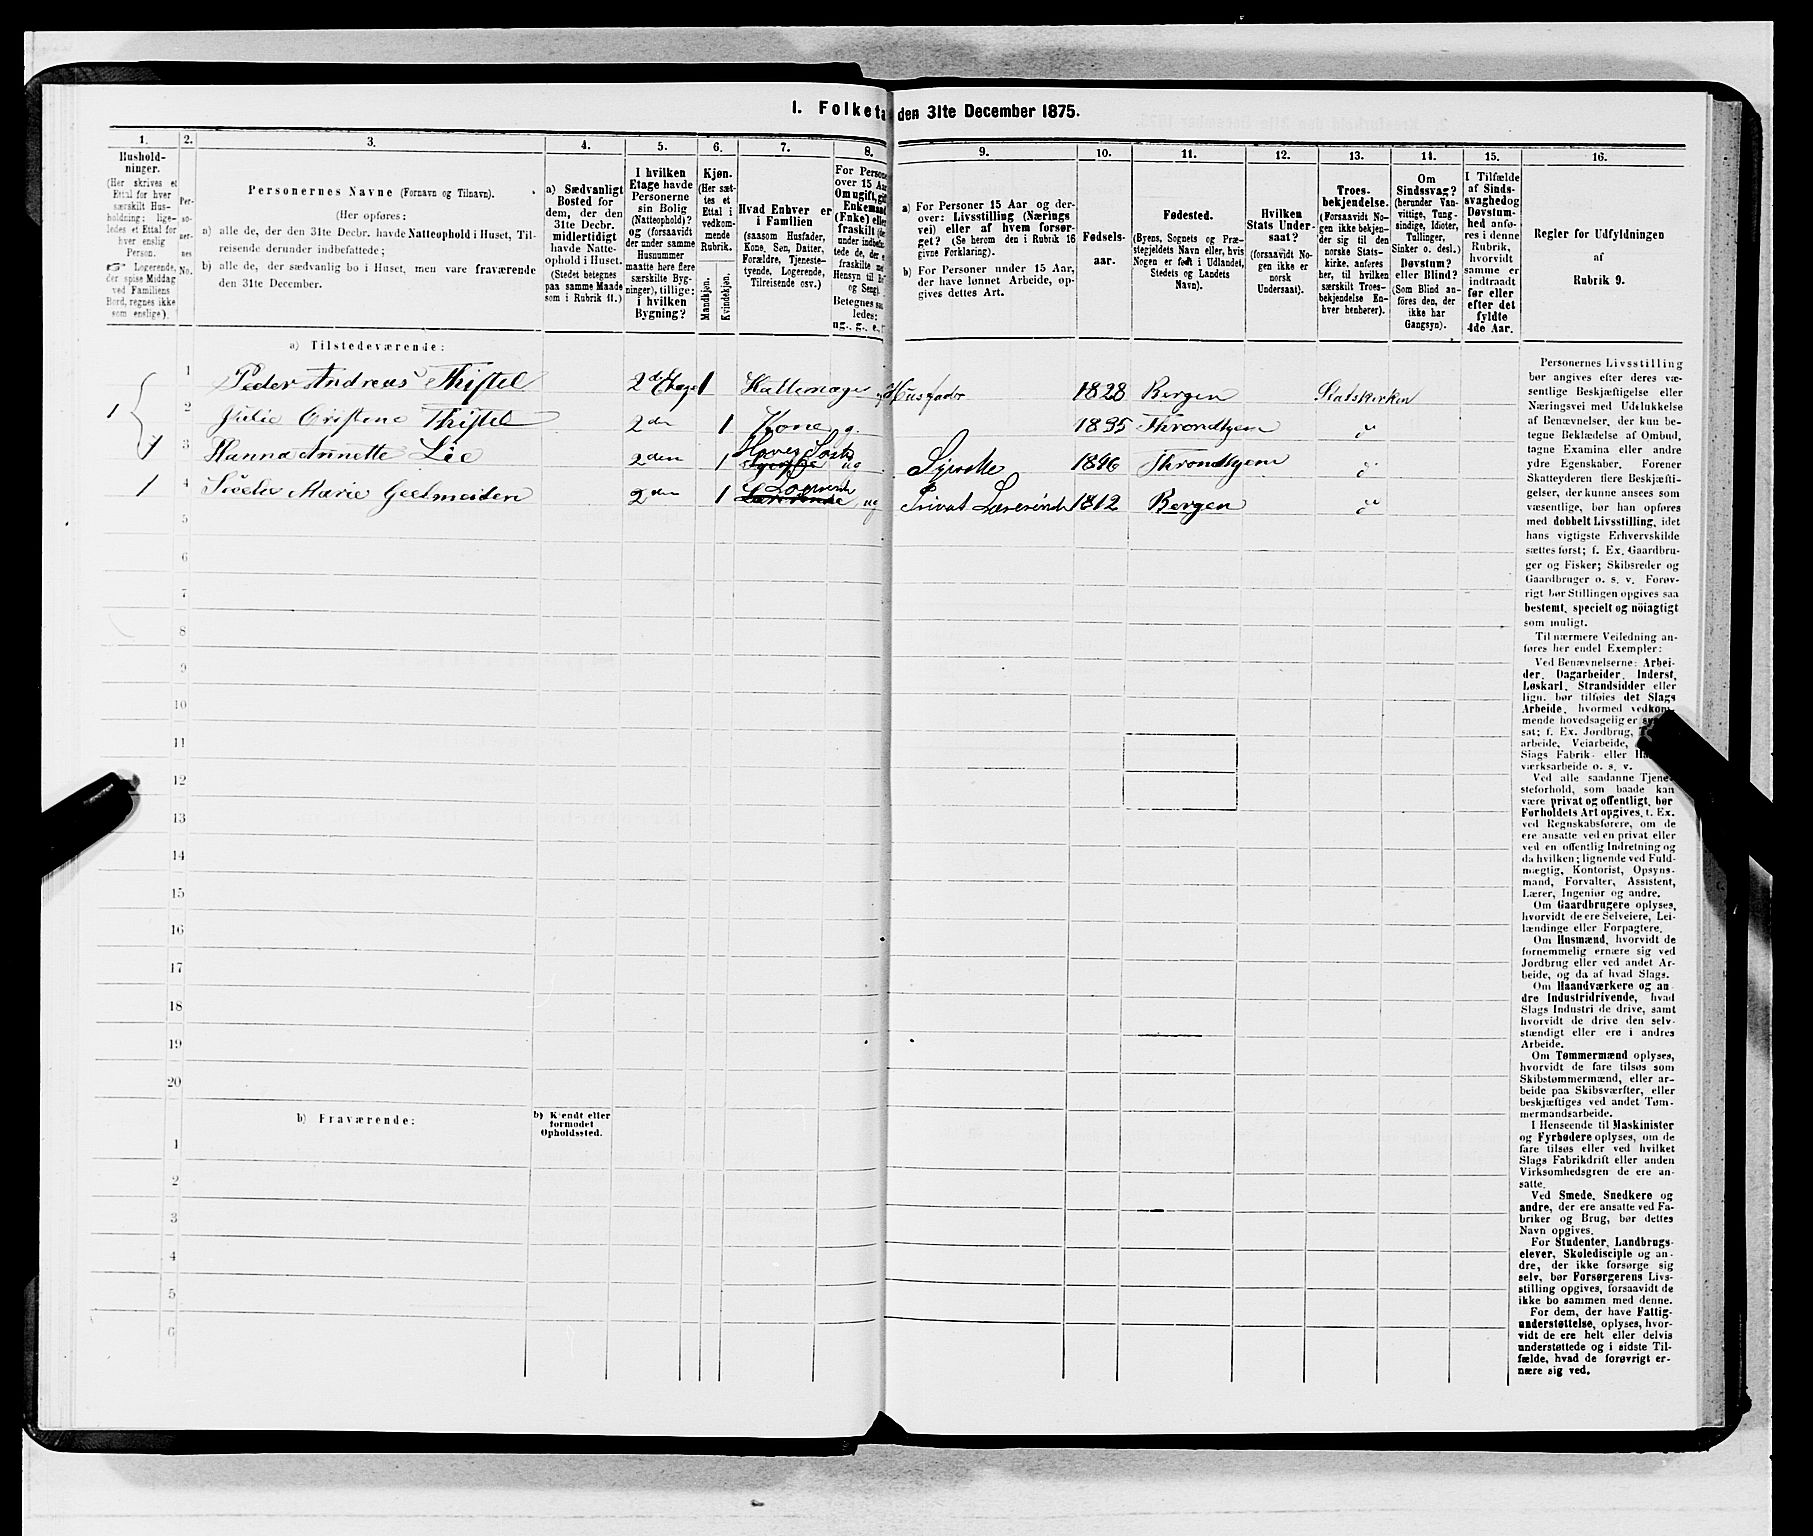 1. Folketa den 31te December 1875.
1. 2. 3. 4. 5. 6. 7. 8. 9. 10. 11. 12. 13. 14. 15. 16.
Hushold-
ninger.
(Her skrives et
Ettal for hver
særskilt Hus-
holdning; lige-
ledes et Ettal for
hver enslig
Person.
Logerende,
der spise Middag
ved Familiens
Bord, regnes ikke
som enslige).
Per-
so-
ner-
nes
No.
Personernes Navne (Fornavn og Tilnavn).
(Her opføres:
a) alle de, der den 31te Decbr. havde Natteophold i Huset, Til-
reisende derunder indbefattede;
b) alle de, der sædvanlig bo i Huset, men vare fraværende
den 31te December.
a) Sædvanligt
Bosted for
dem, der den
31te Decbr.
midlertidigt
havde Natte-
ophold i Huset.
(Stedet betegnes
paa samme Maade
som i Rubrik 11.)
I hvilken
Etage havde
Personerne
sin Bolig
(Natteophold)?
og (forsaavidt
der under samme
Husnummer
maatte høre flere
særskilte Byg-
ninger), tillige:
i hvilken
Bygning?
Kjøn.
(Her sæt-
tes et
Ettal i
vedkom-
mende
Rubrik.
Mandkjøn.
Kvindekjøn.
Hvad Enhver er
i Familien
(saasom Husfader,
Kone, Søn, Datter,
Forældre, Tjeneste-
tyende, Logerende,
Tilreisende osv.)
For Persone
over 15 Aar
Om ugift, gift
Enkemand
(Enke) elle
fraskilt (de
under indbefa
tede de, der e
fraskilte me
Hensyn til Bo
og Seng).
Betegnes saa
ledes:
ug., g., e.,
a) For Personer 15 Aar og der-
over: Livsstilling (Nærings
vei) eller af hvem forsør-
get? (Se herom den i Rubrik 16
givne Forklaring).
b) For Personer under 15 Aar,
der have lønnet Arbeide, op-
gives dettes Art.
Fødsels-
aar.
Fødested.
(Byens, Sognets og Præ-
stegjeldets Navn eller, hvis
Nogen er født i Udlandet,
Stedets og Landets
Navn).
Hvilken
Stats Under-
saat?
(forsaavidt No-
gen ikke er
norsk
Undersaat).
Troes-
bekjendelse.
(Forsaavidt No-
gen ikke bekjen-
der sig til den
norske Stats-
kirke, anføres
her, til hvilken
særskilt Troes-
bekjendelse En-
hver henhører).
Om
Sindssvag?
(herunder Van-
vittige, Tung-
sindige, Idioter,
Tullinger,
Sinker o. desl.)
Døvstum?
eller Blind?
(Som Blind an-
føres den, der
ikke har
Gangsyn).
I Tilfælde
af Sinds-
svaghed og
Døvstum-
hed anfø-
res i denne
Rubrik,
hvorvidt
samme er
indtraadt
før eller
efter det
fyldte
4de Aar.
Regler for Udfyldningen
af
Rubrik 9.
a) Tilstedeværende:
1 Peder Andreas Thiftel 2den Etage 1 Husfader 1828 Bergen Statskirken
1 2 Julie Cristine Thiftel 2den 1 Kone g. 1835 Throndhjem do
1 3 Hanna Annette Lie 2den 1 ug Syerske 1846 Throndhjem do
1 4 Marie Geelmeiden 2den 1 ug Privat Lærerinde 1812 Bergen do
5
6
7
8
9
10
11
12
13
14
15
16
17
18
19
20
b) Fraværende:
b) Kjendt eller
formodet
Opholdssted.
1
2
3
4
5
6
Personernes Livsstilling
bør angives efter deres væ-
sentlige Beskjæftigelse eller
Næringsvei med Udelukkelse
af Benævnelser, der kun be-
tegne Beklædelse af Ombud,
tagne Examina eller andre
ydre Egenskaber. Forener
Skatteyderen flere Beskjæfti-
gelser, der kunne ansees som
væsentlige, bør han opføres
med dobbelt Livsstilling, idet
hans vigtigste Erhvervskilde
sættes først; f. Ex. Gaardbru-
ger og Fisker; Skibsreder og
Gaardbruger o. s. v. Forøv-
rigt bør Stillingen opgives saa
bestemt, specielt og nöiagtigt
som muligt.
Til nærmere Veiledning an-
føres her endel Exempler:
Ved Benævnelserne: Arbei-
der, Dagarbeider, Inderst,
Løskarl, Strandsidder eller
lign. bør tilføies det Slags
Arbeide, hvormed vedkom-
mende hovedsagelig er
sat; f. Ex. Jordbrug,
arbeide, Veiarbeide,
Slags Fabrik- eller
værksarbeide o. s. v.
Ved alle saadanne Tjene-
steforhold, som baade kan
være privat og offentligt, bør
Forholdets Art opgives, t. Ex.
ved Regnskabsførere, om de
ere ansatte ved en privat eller
ved en offentlig Indretning og
da hvilken; lignende ved Fuld-
mægtig, Kontorist, Opsyns-
mand, Forvalter, Assistent,
Lærer, Ingeniør og andre.
Om Gaardbrugere oplyses,
hvorvidt de ere Selveiere, Lei-
lændinge eller Forpagtere.
Om Husmænd, hvorvidt de
fornemmelig ernære sig ved
Jordbrug eller ved andet Ar-
beide, og da af hvad Slags.
Om Haandværkere og an-
dre Industridrivende, hvad
Slags Industri de drive, samt
hvorvidt de drive den selv-
stændigt eller ere i andres
Arbeide.
Om Tømmermænd oplyses,
hvorvidt de fare tilsøs som
Skibstømmermænd, eller ar-
beide paa Skibsværfter, eller
beskjæftiges ved andet Tøm-
mermandsarbeide.
I Henseende til Maskinister
og Fyrbødere oplyses, om de
fare tilsøs eller ved hvilket
Slags Fabrikdrift eller anden
Virksomhedsgren de ere an-
satte.
Ved Smede, Snedkere og
andre, der ere ansatte ved Fa-
briker og Brug, bør dettes
Navn opgives.
For Studenter, Landbrugs-
elever, Skoledisciple og an-
dre, der ikke forsørge sig
selv, bør Forsørgerens Livs-
stilling opgives, forsaavidt de
ikke bo sammen med denne.
For dem, der have Fattig-
understøttelse, oplyses, hvor-
vidt de ere helt eller delvis
understøttede og i sidste Til-
fælde, hvad de forøvrigt er-
nære sig ved.